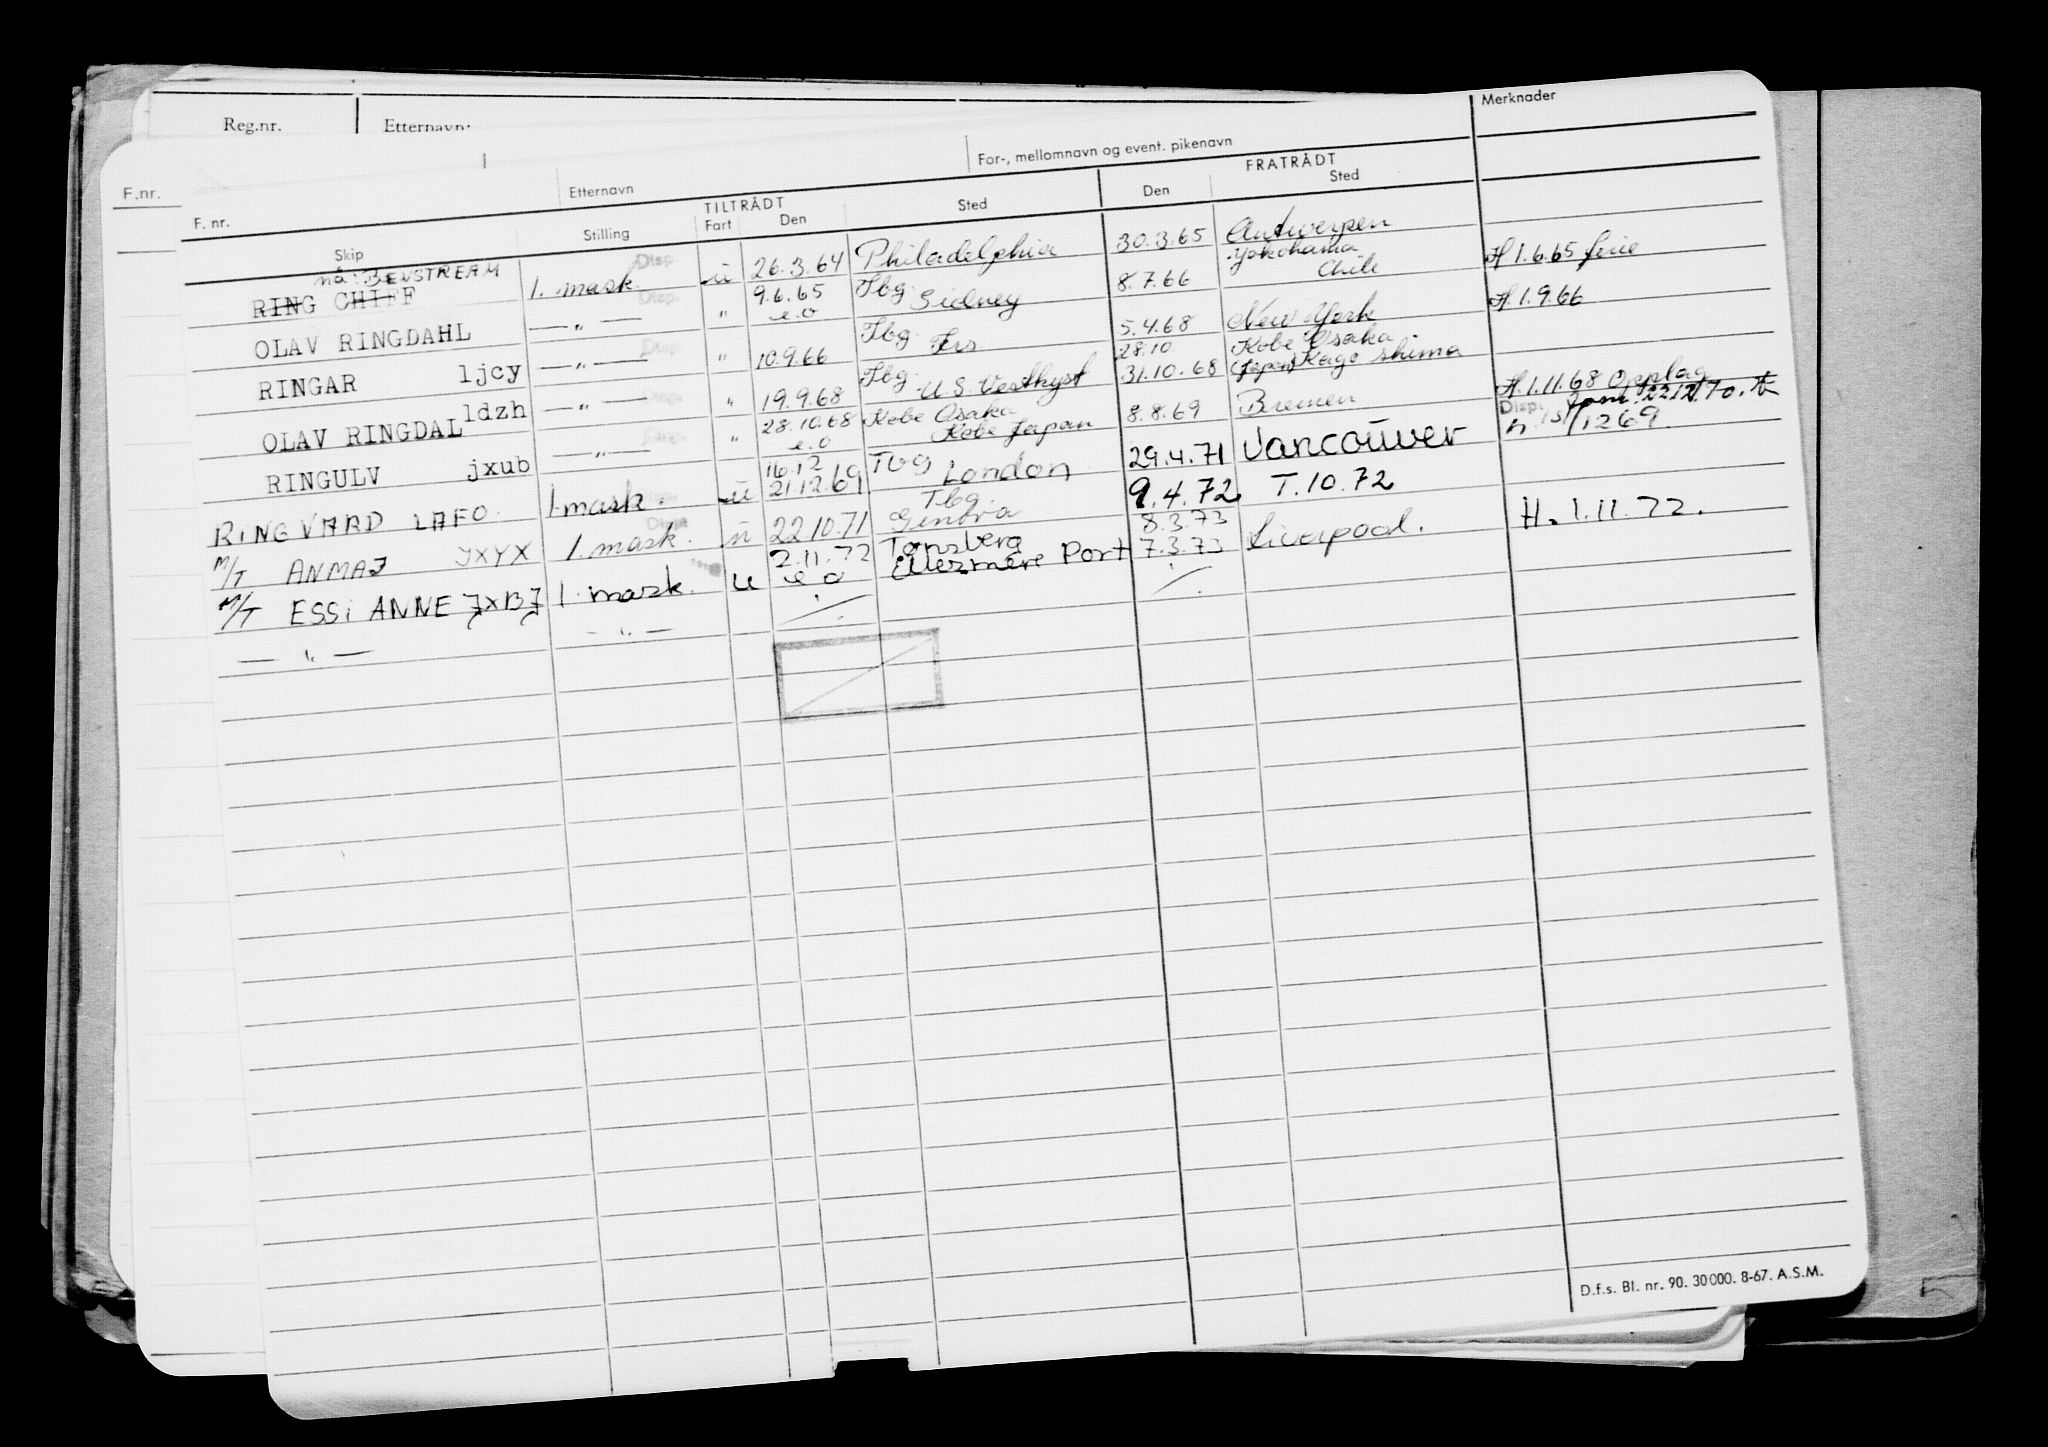 Reg.nr. Etternavn:
Merknader
F.nr.
For-, mellomnavn og event. pikenavn
Etternavn
F. nr.
TILTRÅDT FRATRÅDT
Skip Stilling Fart Den Sted Den Sted
nå: BENSTREAM
RING CHIFF 1. mask. Disp. ü 26.3.64 Philadelphia 30.3.65 Antwerpen
OLAV RINGDAHL — " — Disp. " 9.6.65 e.o Tbg. Sidney 8.7.66 Yokohama Chile H 1.6.65 ferie
RINGAR ljcy — " — Disp. " 10.9.66 Tbg. 5.4.68 New York H. 1.9.66
OLAV RINGDAL ldzh — " — Disp. " 19.9.68 Tbg. U S. Vestkyst 28.10 31.10.68 Kobe Osaka (Japan) Kago shima
RINGULV jxub — " — " 28.10.68 e.o Kobe Osaka Kobe Japan 8.8.69 Bremen H. 1.11.68 Opplag
Disp.
RINGVARD LAFO 1. mask. ü 16.12 21.12.69 Tbg London 29.4.71 Vancouver
M/T ANMAJ JXYX 1. mask. ü 22.10.71 Tbg. Genova 9.4.72 T.10.72
M/T ESSI ANNE JXBJ 1. mask. u 2.11.72 e o Tønsberg Ellesmere Port 8.3.73 7.3.73 Liverpool. H. 1.11.72.
— " — — " — ./. ./.
D.f.s. Bl. nr. 90. 30000. 8-67. A.S.M.